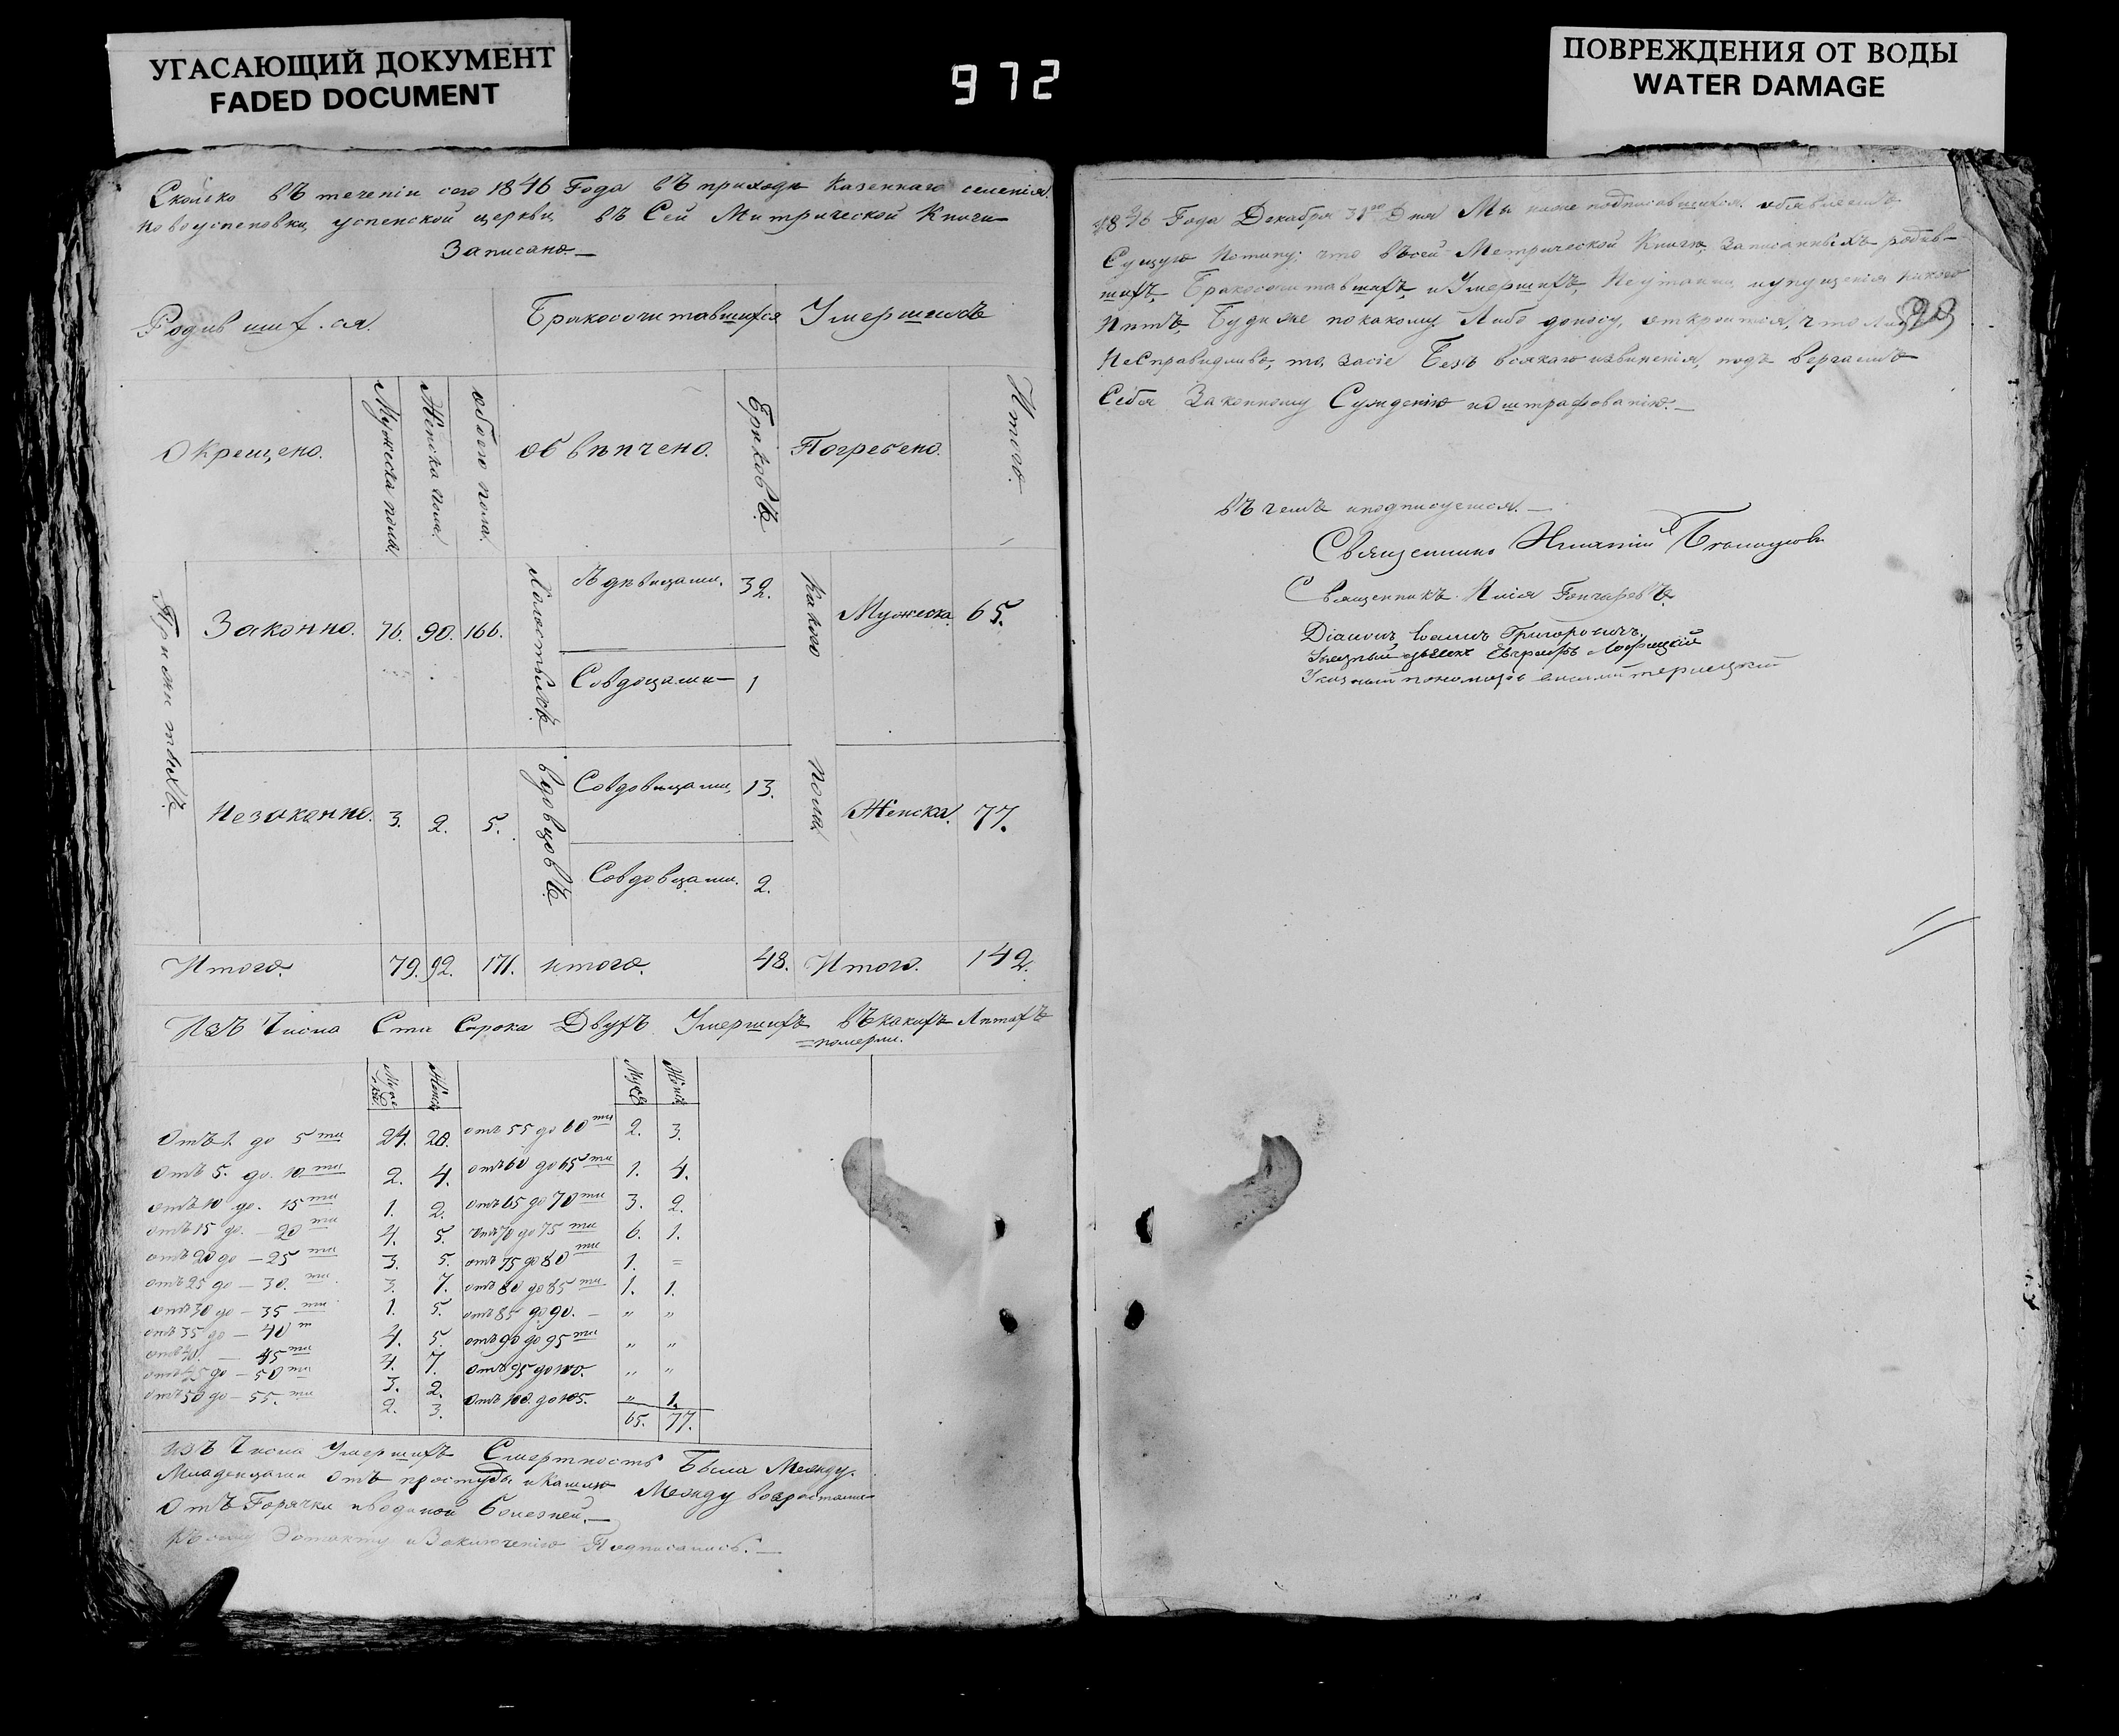 УГАСАЮЩИЙ ДОКУМЕНТ
FADED DOCUMENT
972
ПОВРЕЖДЕНИЯ ОТ ВОДЫ
WATER DAMAGE
Сколко въ теченіи сего 1846 Года въ приходѣ Казеннаго селенія
Новоуспеновки, успенской церкви, въ Сей Митрической Книги
Записано.—
Родившихся. Бракосочитавшихся Умершихъ
Окрещено. Мужеска пола. Женска пола. обоего пола. обвѣнчено. Браковъ. Погребено. Итого.
Прижитыхъ.
Законно. 76. 90. 166. Холостыхъ. Здѣвицами. 32. Какого Мужеска. 65.
Совдовцами— 1
Незаконно. 3. 2. 5. Вдовцовъ. Совдовицами, 13. пола. Женска. 77.
Совдовцами. 2.
Итого. 79. 92. 171. итого. 48. Итого. 142.
Изъ Числа Сти Сорока Двухъ Умершихъ въ какихъ Лѣтахъ
=померли.
Муж. Женс. Муж. Женс.
Отъ 1. до 5ти 24. 20. отъ 55 до 60ти 2. 3.
отъ 5. до. 10ти 2. 4. отъ 60 до 65ти 1. 4.
отъ 10 до. 15ти 1. 2. отъ 65 до 70ти 3. 2.
отъ 15 до. — 20ти 4. 5. отъ 70 до 75ти 6. 1.
отъ 20 до — 25ти 3. 5. отъ 75 до 80ти 1. =
отъ 25 до — 30.ти 3. 7. отъ 80 до 85ти 1. 1.
отъ 30 до — 35ти 1. 5. отъ 85 до 90. — „ „
отъ 35 до — 40т 4. 5. отъ 90 до 95ти „ „
отъ 40. — 45ти 4. 7. отъ 95 до 100. „ „
отъ 45 до — 50ти 3. 2. отъ 100. до 105. „ 1.
отъ 50 до — 55.ти 2. 3. 65. 77.
изъ Числа Умершихъ Смертность Была Между
Младенцами отъ простуды и Кашлю Между возрастами
отъ Горячки и водяной болезней.—
Подписались.—
1846 Года Декабря 31го Дня Мы ниже подписавшихся. обявляемъ
Сущую Истину; что въ сей Метрической Книги, Записанныхъ родив-
шихъ, Бракосочитавшихъ, и Умершихъ, Неутайки, и упущенія никого
Нѣтъ, Буди же по какому Либо доносу, откроится, что
Несправидливе, то, засіе Безъ всякаго извиненія, подъ вергаемъ
Себя Законному Сужденію и Оштрафованію.—
въ чемъ и подписуемся.—
Священникъ Игнатій
Священникъ Илія Гончаровъ.
Діаконъ Іоаннъ Григоровичъ.
Указный
Указный пономарь василій